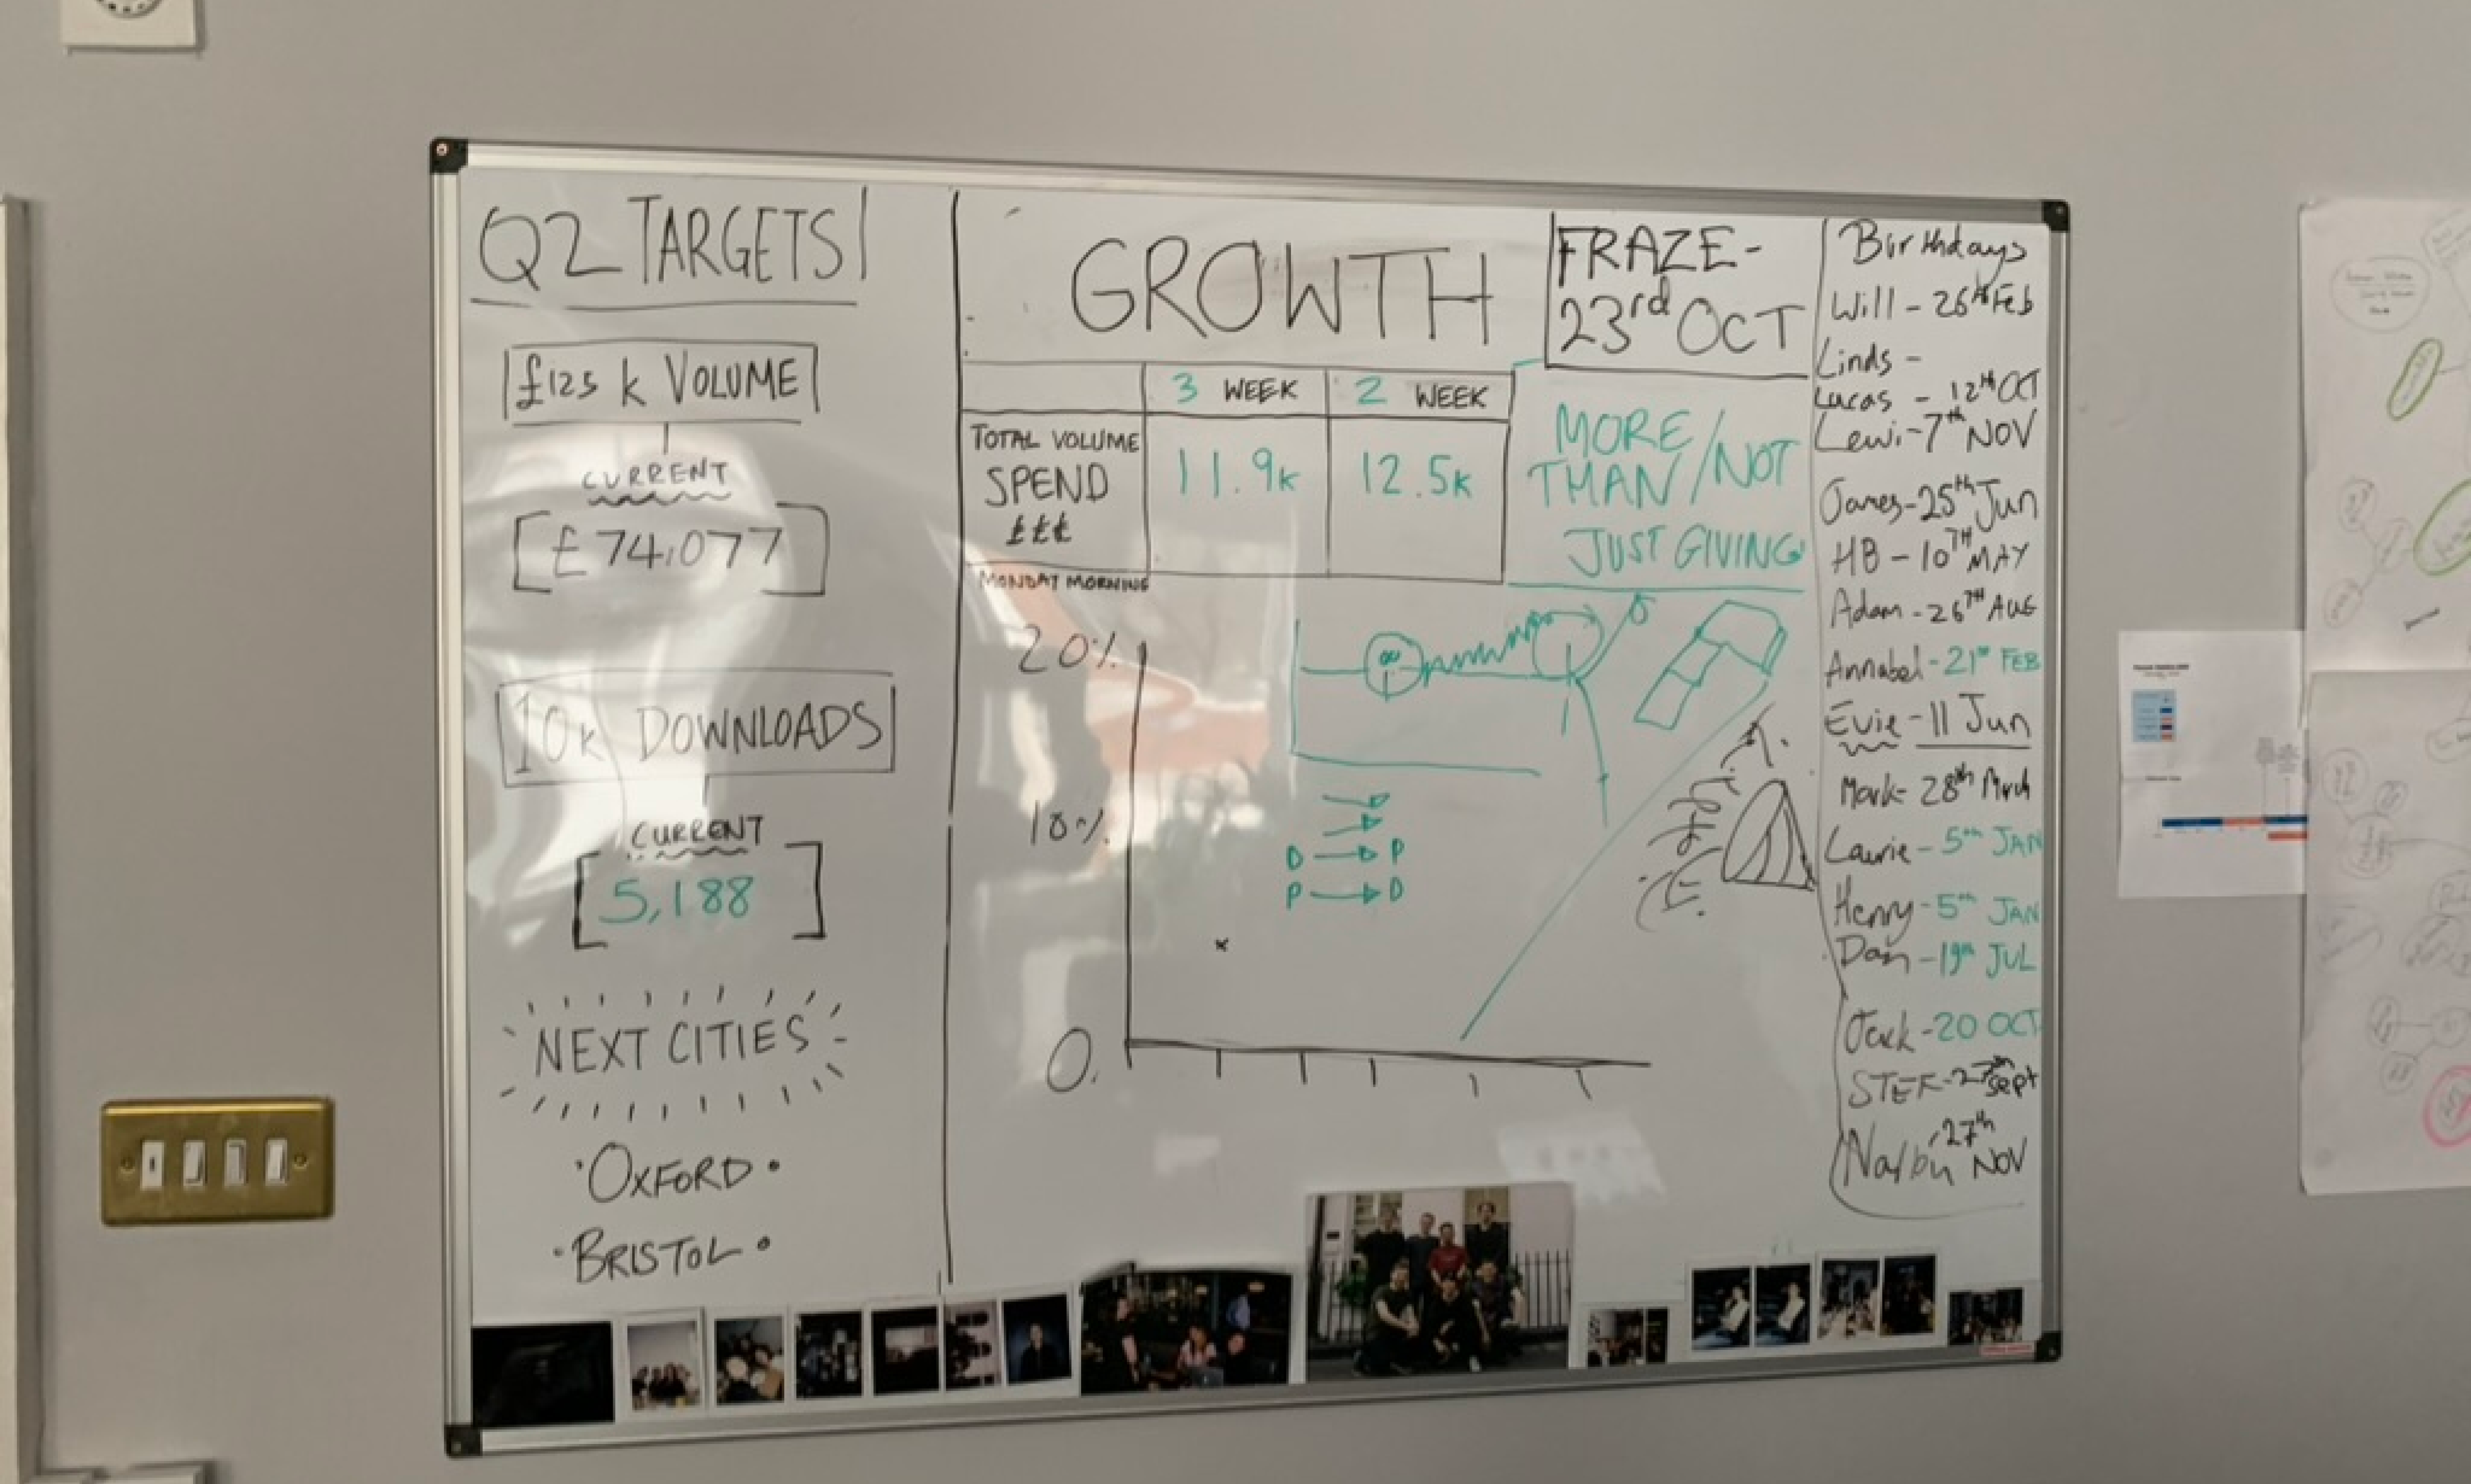 Q2 TARGETS
£125 k VOLUME
CURRENT
[£74,077]
10k DOWNLOADS
CURRENT
[5,188]
NEXT CITIES
·OXFORD·
·BRISTOL·
GROWTH
3 WEEK
2 WEEK
TOTAL VOLUME
SPEND
£££
11.9k
12.5k
MONDAY MORNING
20%
10%
0
D P
P D
FRAZE-
23rd OCT
MORE
THAN/NOT
JUST GIVING
Birthdays
Will - 26th Feb
Linds -
Lucas - 12TH OCT
Lewi - 7th NOV
James - 25th Jun
HB - 10TH MAY
Adam - 26TH AUG
Annabel - 21st FEB
Evie - 11 Jun
Mark - 28th Mrch
Laurie - 5th JAN
Henry - 5th JAN
Dan - 19th JUL
Jack - 20 OCT
STEF - 27th Sept
27th
NOV